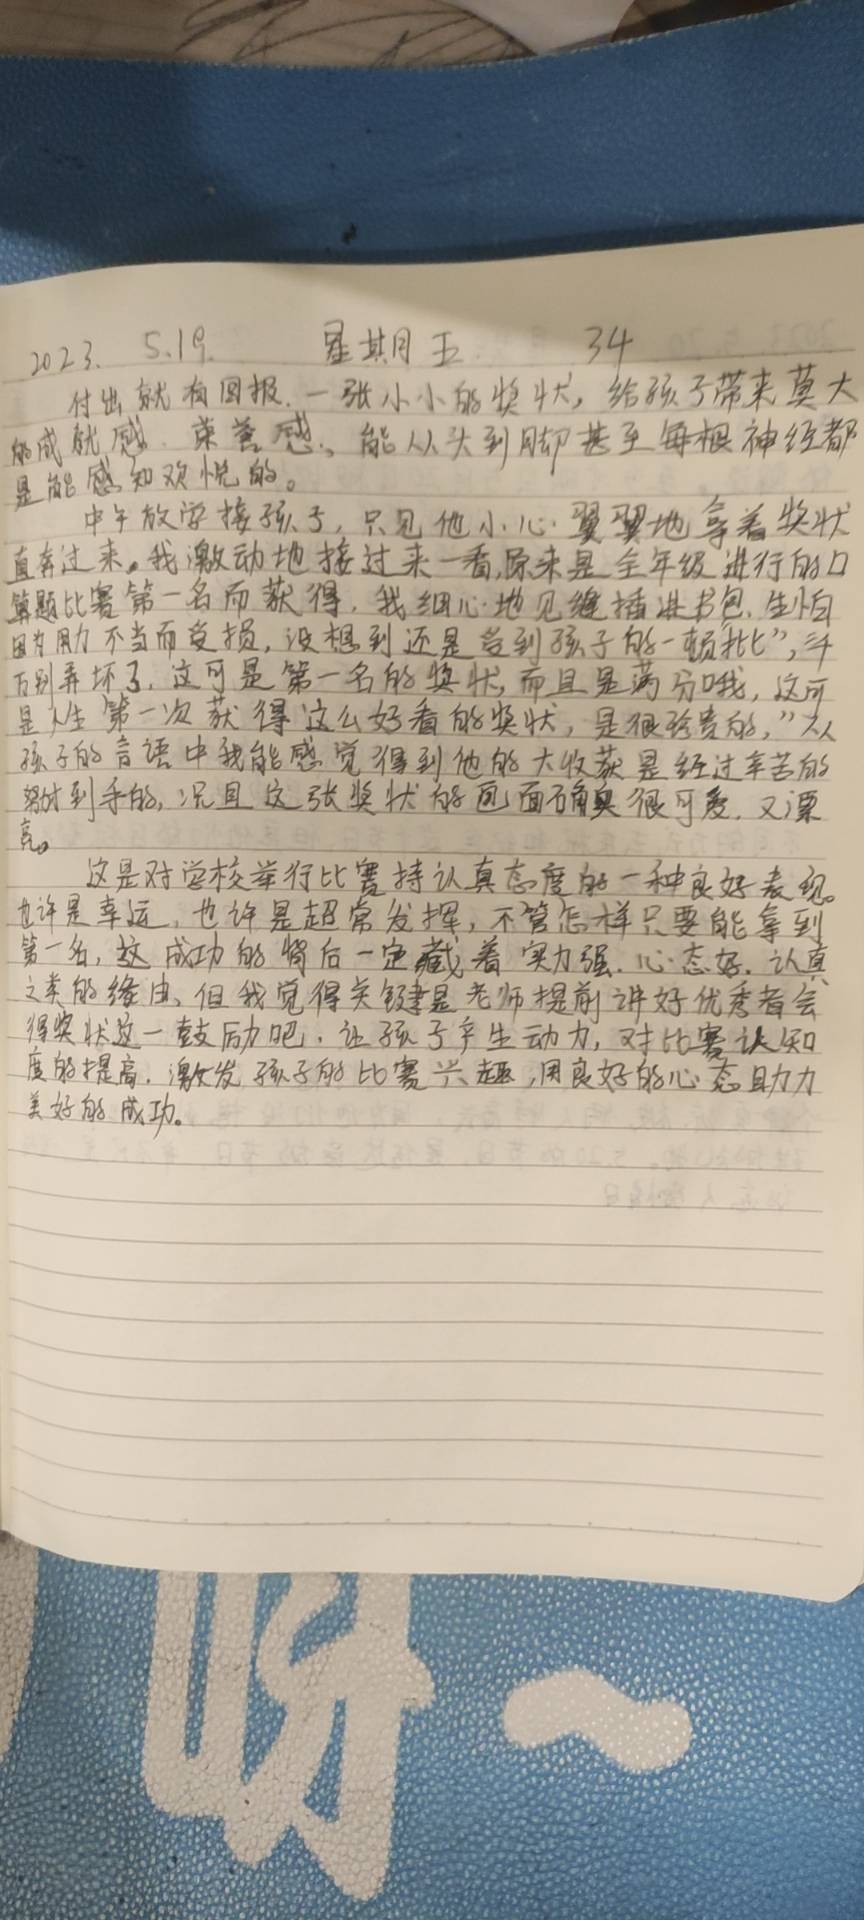 2023. 5.19. 星期五. 34
付出就有回报. 一张小小的奖状, 给孩子带来莫大
的成就感. 荣誉感, 能从头到脚甚至每根神经都
是能感知欢悦的。
中午放学接孩子, 只见他小心翼翼地拿着奖状
直奔过来。我激动地接过来一看,原来是全年级进行的口
算题比赛第一名而获得, 我细心地见缝插进书包, 生怕
因为用力不当而受损, 没想到还是受到孩子的一顿“批”, 千
万别弄坏了, 这可是第一名的奖状, 而且是满分哦, 这可
是人生第一次获得这么好看的奖状, 是很珍贵的,” 从
孩子的言语中我能感觉得到他的大收获是经过辛苦的
努力到手的, 况且这张奖状的画面确实很可爱, 又漂
亮。
这是对学校举行比赛持认真态度的一种良好表现。
也许是幸运, 也许是超常发挥, 不管怎样只要能拿到
第一名, 这成功的背后一定藏着实力强. 心态好. 认真
之类的缘由, 但我觉得关键是老师提前讲好优秀者会
得奖状这一鼓励吧. 让孩子产生动力, 对比赛认知
度的提高. 激发孩子的比赛兴趣, 用良好的心态助力
美好的成功。
呀~